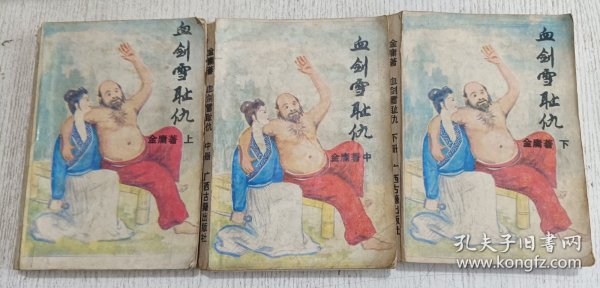 血剑雪耻仇
金庸著 上
金庸著 血剑雪耻仇 中册 广西古籍出版社
血剑雪耻仇
金庸著 中
金庸著 血剑雪耻仇 下册 广西古籍出版社
血剑雪耻仇
金庸著 下
孔夫子旧书网
www.kongfz.com